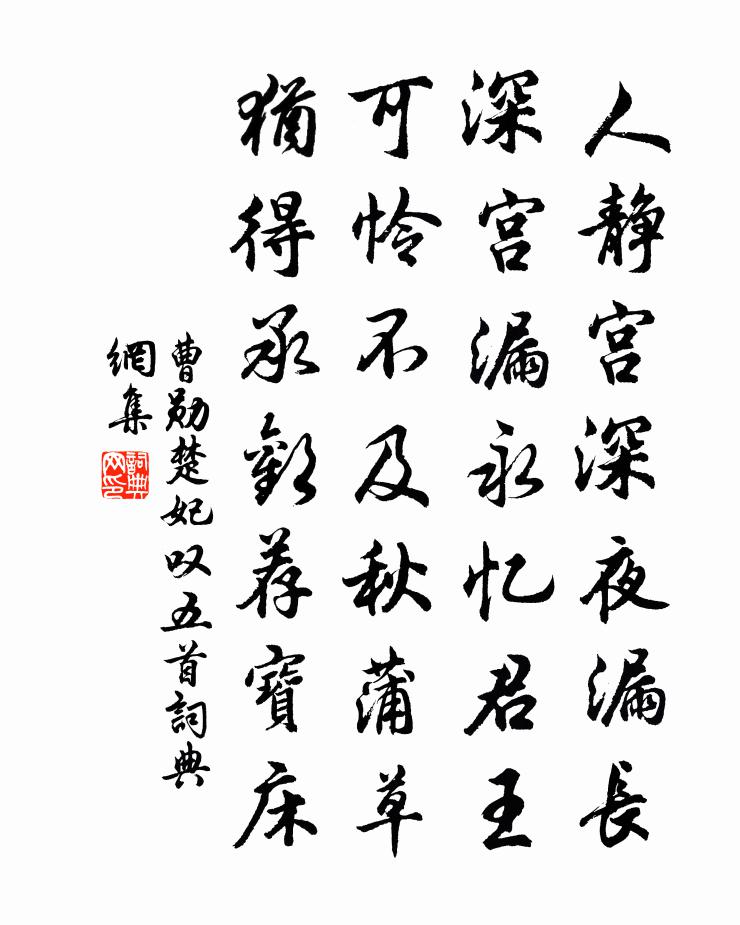 人静宫深夜漏長
深宫漏永忆君王
可怜不及秋蒲草
猶得承歡荐寶床
曹勋楚妃叹五首詞典
網集
詞典网印